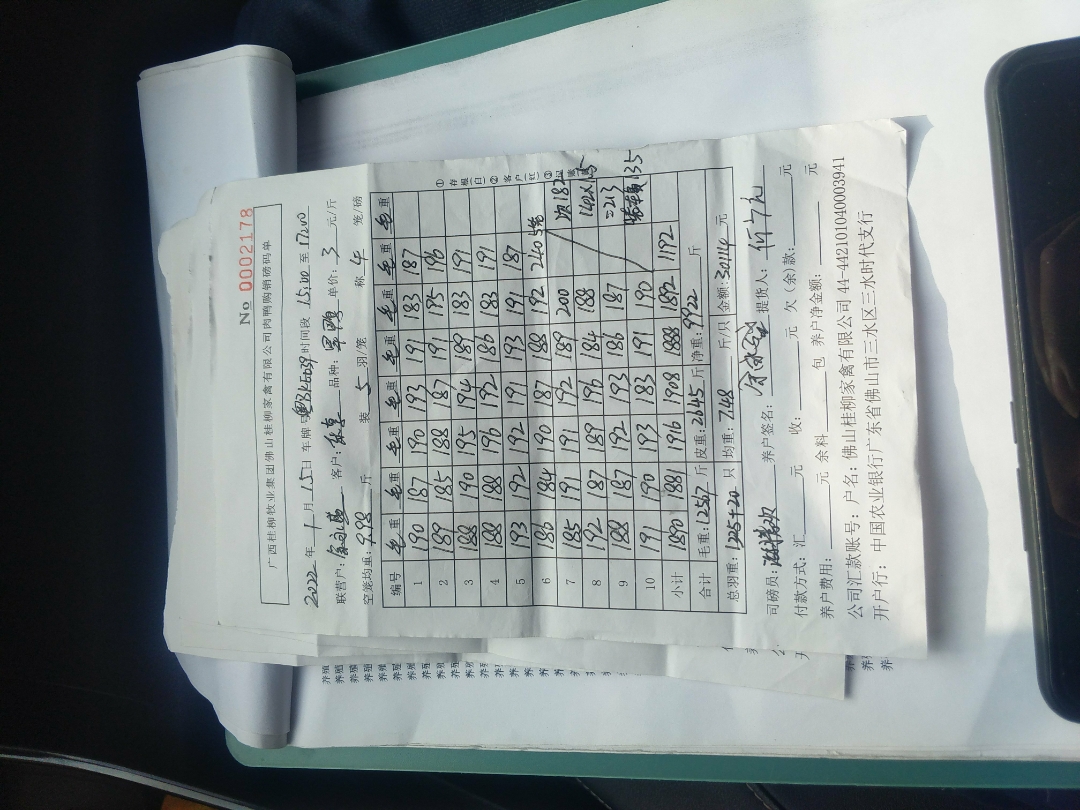 No 0002178
广西桂柳牧业集团佛山桂柳家禽有限公司肉鸭购销磅码单
2022 年 1 月 15 日 车牌号 时间段 15:00 至 17:00
联营户: 客户: 品种: 单价: 3 元/斤
空笼均重: 9.98 斤 装 5 羽/笼 称 4 笼/磅
编号 毛重 毛重 毛重 毛重 毛重 毛重 毛重 毛重
1 190 187 190 193 191 183 187
2 189 185 188 187 191 195 196
3 188 190 195 194 189 183 191
4 188 188 196 192 186 183 191
5 193 192 192 191 193 191 187
6 186 184 190 187 188 192 240 5笼
7 185 191 191 192 189 200 次18只
8 192 187 189 196 184 188
9 188 187 192 193 186 187 =213
10 191 190 193 183 191 190 35
小计 1890 1881 1916 1908 1888 1892 1192
合计 毛重: 12567 斤 皮重: 2645 斤 净重: 9922 斤
总羽重: 1325+20 只 均重: 7.48 斤/只 金额: 30114 元
①存根(白) ②客户(红) ③
司磅员: 养户签名: 提货人:
付款方式: 汇 元 收: 元 欠(余)款: 元
养户费用: 元 余料 包 养户净金额: 元
公司汇款账号: 户名: 佛山桂柳家禽有限公司 44-442101040003941
开户行: 中国农业银行广东省佛山市三水区三水时代支行